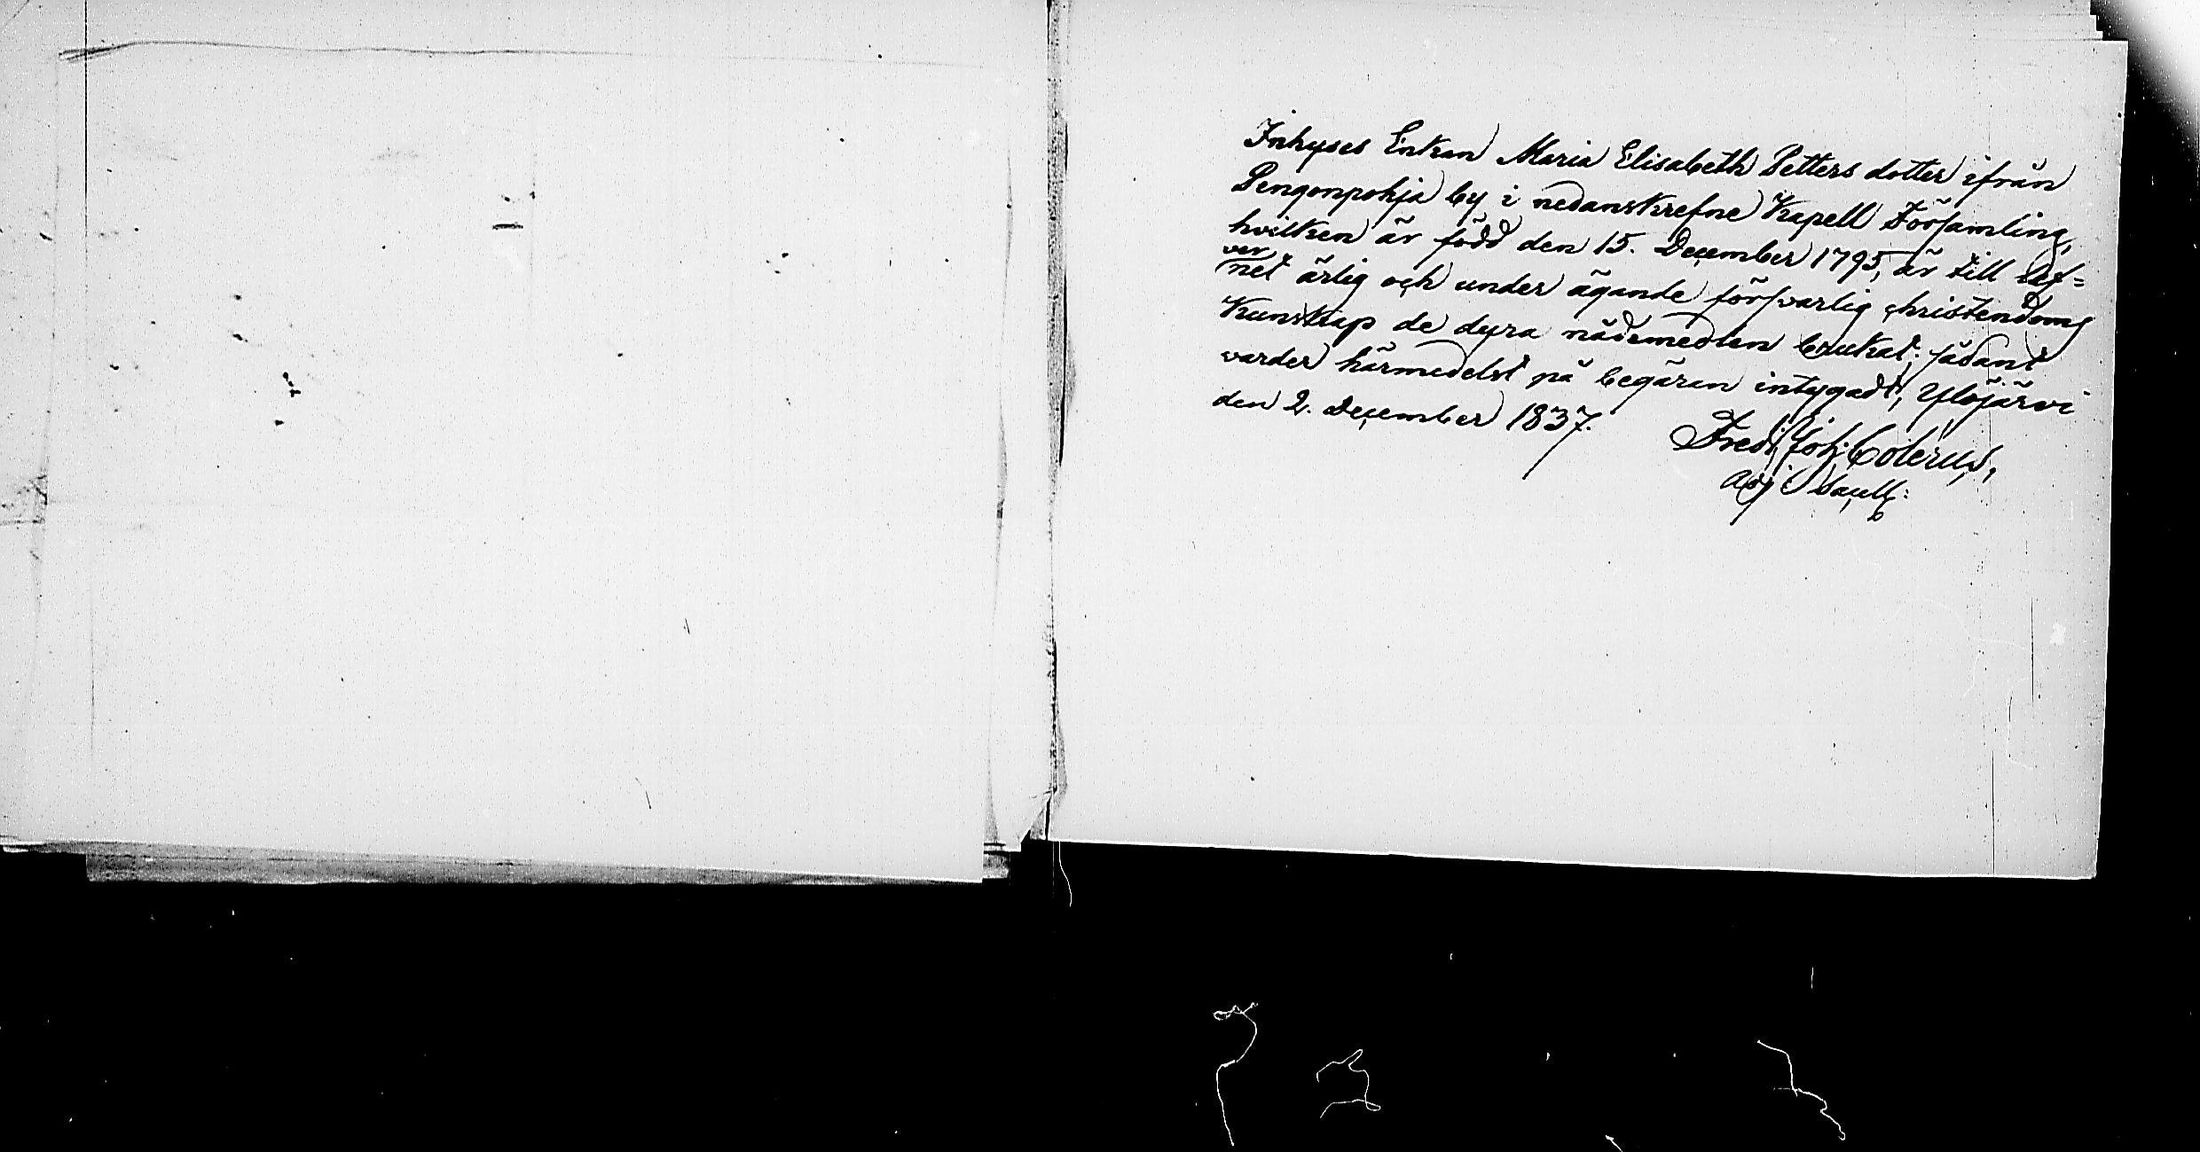 Inhyses Enkan Maria Elisabeth Petters dotter ifrån
Pengonpohja by i nedanskrefne Kapell Församling,
hvilken är född den 15. December 1795, är till lef=
ver
net ärlig och under ägande försvarlig christendoms
Kunskap de dyra nådemedlen brukat; sådant
varder härmedelst på begäran intygadt, Ylöjärvi
den 2. December 1837.
Fredr. Joh. Colerus,
Adj Sacell: